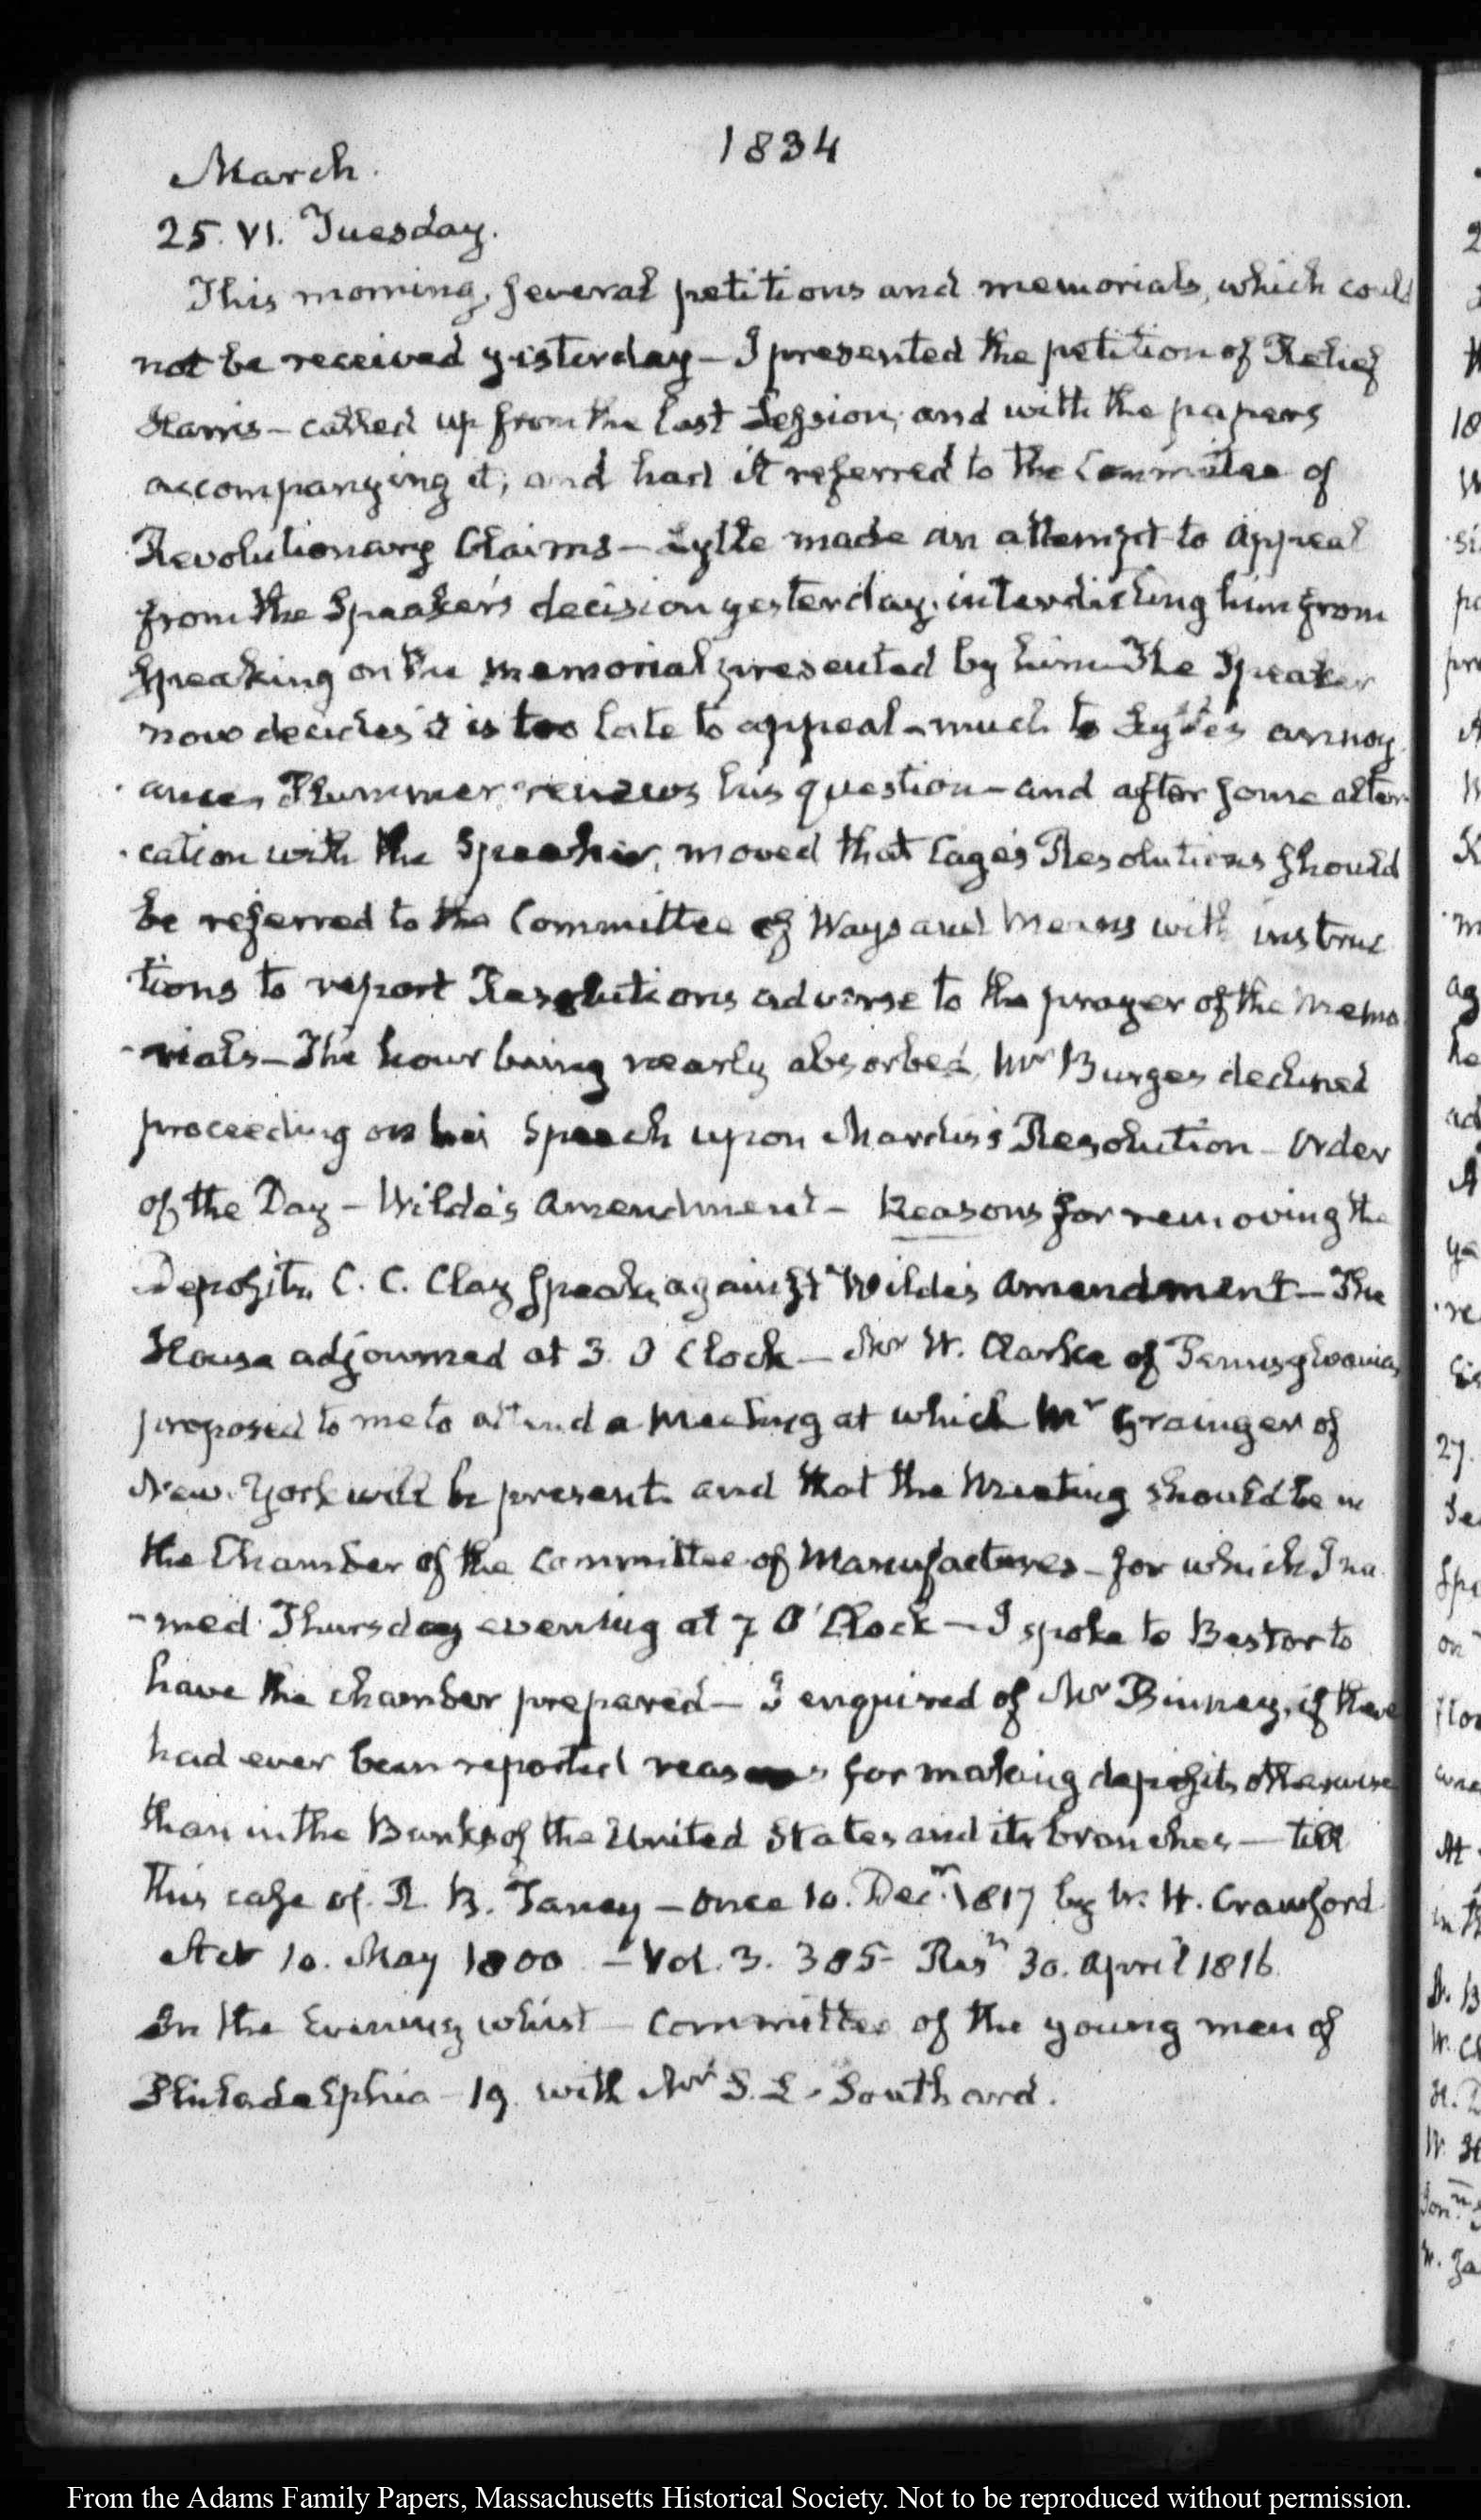 1834
March.
25. VI. Tuesday.
This morning, several petitions and memorials, which could
not be received yesterday – I presented the petition of Relief
Harris – called up from the last Session, and with the papers
accompanying it, and had it referred to the Committee of
Revolutionary Claims – Lytle made an attempt to appeal
from the Speaker's decision yesterday, interdicting him from
speaking on the memorial presented by him – The Speaker
now decides it is too late to appeal – much to Lytle's annoy
ance. Plummer renews his question – and after some alter
cation with the Speaker, moved that Cage's Resolutions should
be referred to the Committee of Ways and Means with instruc
tions to report Resolutions adverse to the prayer of the Memo
-rials – The hour being nearly absorbed, Mr Burges declined
proceeding on his Speech upon Mardis's Resolution – Order
of the Day – Wilde's Amendment – Reasons for removing the
Deposits. C. C. Clay speaks against Wilde's Amendment – The
House adjourned at 3. O Clock – Mr W. Clarke of Pennsylvania,
proposed to me to attend a Meeting at which Mr Grainger of
New-York will be present and that the Meeting should be in
the Chamber of the Committee of Manufactures – for which I na
-med Thursday evening at 7 O'Clock – I spoke to Bestor to
have the chamber prepared – I enquired of Mr Binney, if there
had ever been reported reasons for making deposits otherwise
than in the Banks of the United States and its branches – till
this case of R. B. Taney – once 10. Decr. 1817 by W. H. Crawford
Act 10. May 1800 – Vol. 3. 385 – Resn 30. April 1816.
In the Evening whist – Committee of the young men of
Philadelphia – 19 with Mr S. L. Southard.
2
18
W
si
pr
ag
he
ad
A
ya
re
27.
Se
Spe
on
At
in th
W. Cl
From the Adams Family Papers, Massachusetts Historical Society. Not to be reproduced without permission.